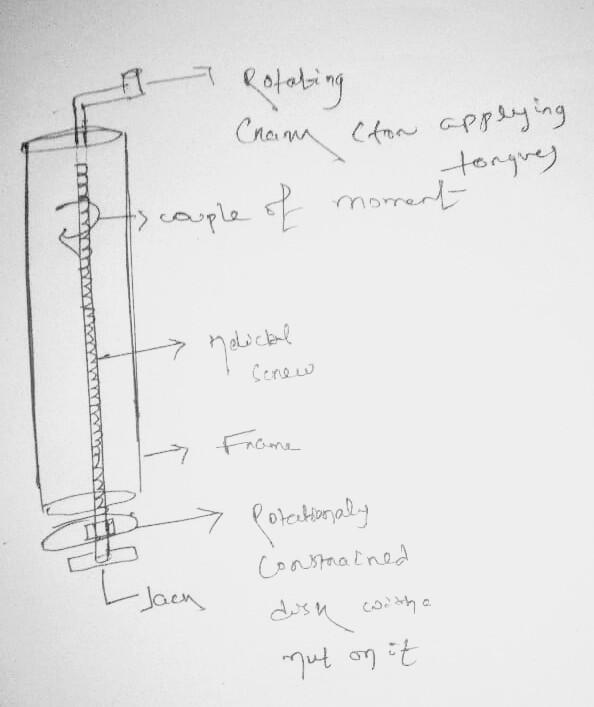 Rotating
Crank (for applying
torques
couple of moment
Helical
screw
Frame
Rotationaly
Constrained
disk with a
nut on it
Jack